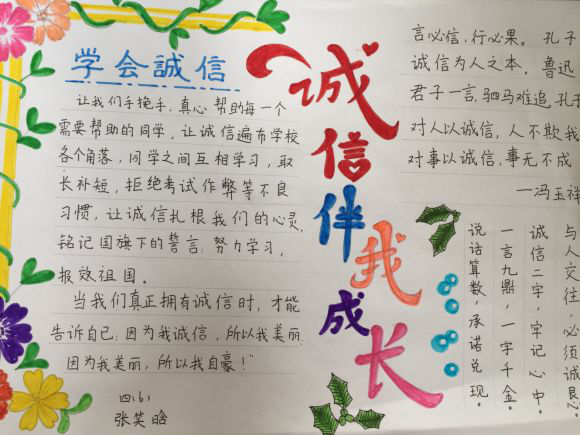 学会誠信
让我们手挽手,真心帮助每一个
需要帮助的同学,让诚信遍布学校
各个角落,同学之间互相学习,取
长补短,拒绝考试作弊等不良
习惯,让诚信扎根我们的心灵,
铭记国旗下的誓言:努力学习,
报效祖国。
当我们真正拥有诚信时,才能
告诉自己:因为我诚信,所以我美丽;
因为我美丽,所以我自豪!"
四(6)
张笑晗
诚信伴我成长
言必信,行必果。孔子
诚信为人之本。鲁迅
君子一言,驷马难追。孔子
对人以诚信,人不欺我
对事以诚信,事无不成
—冯玉祥
与人交往,必须诚恳。
诚信二字,牢记心中。
一言九鼎,一字千金。
说话算数,承诺兑现。